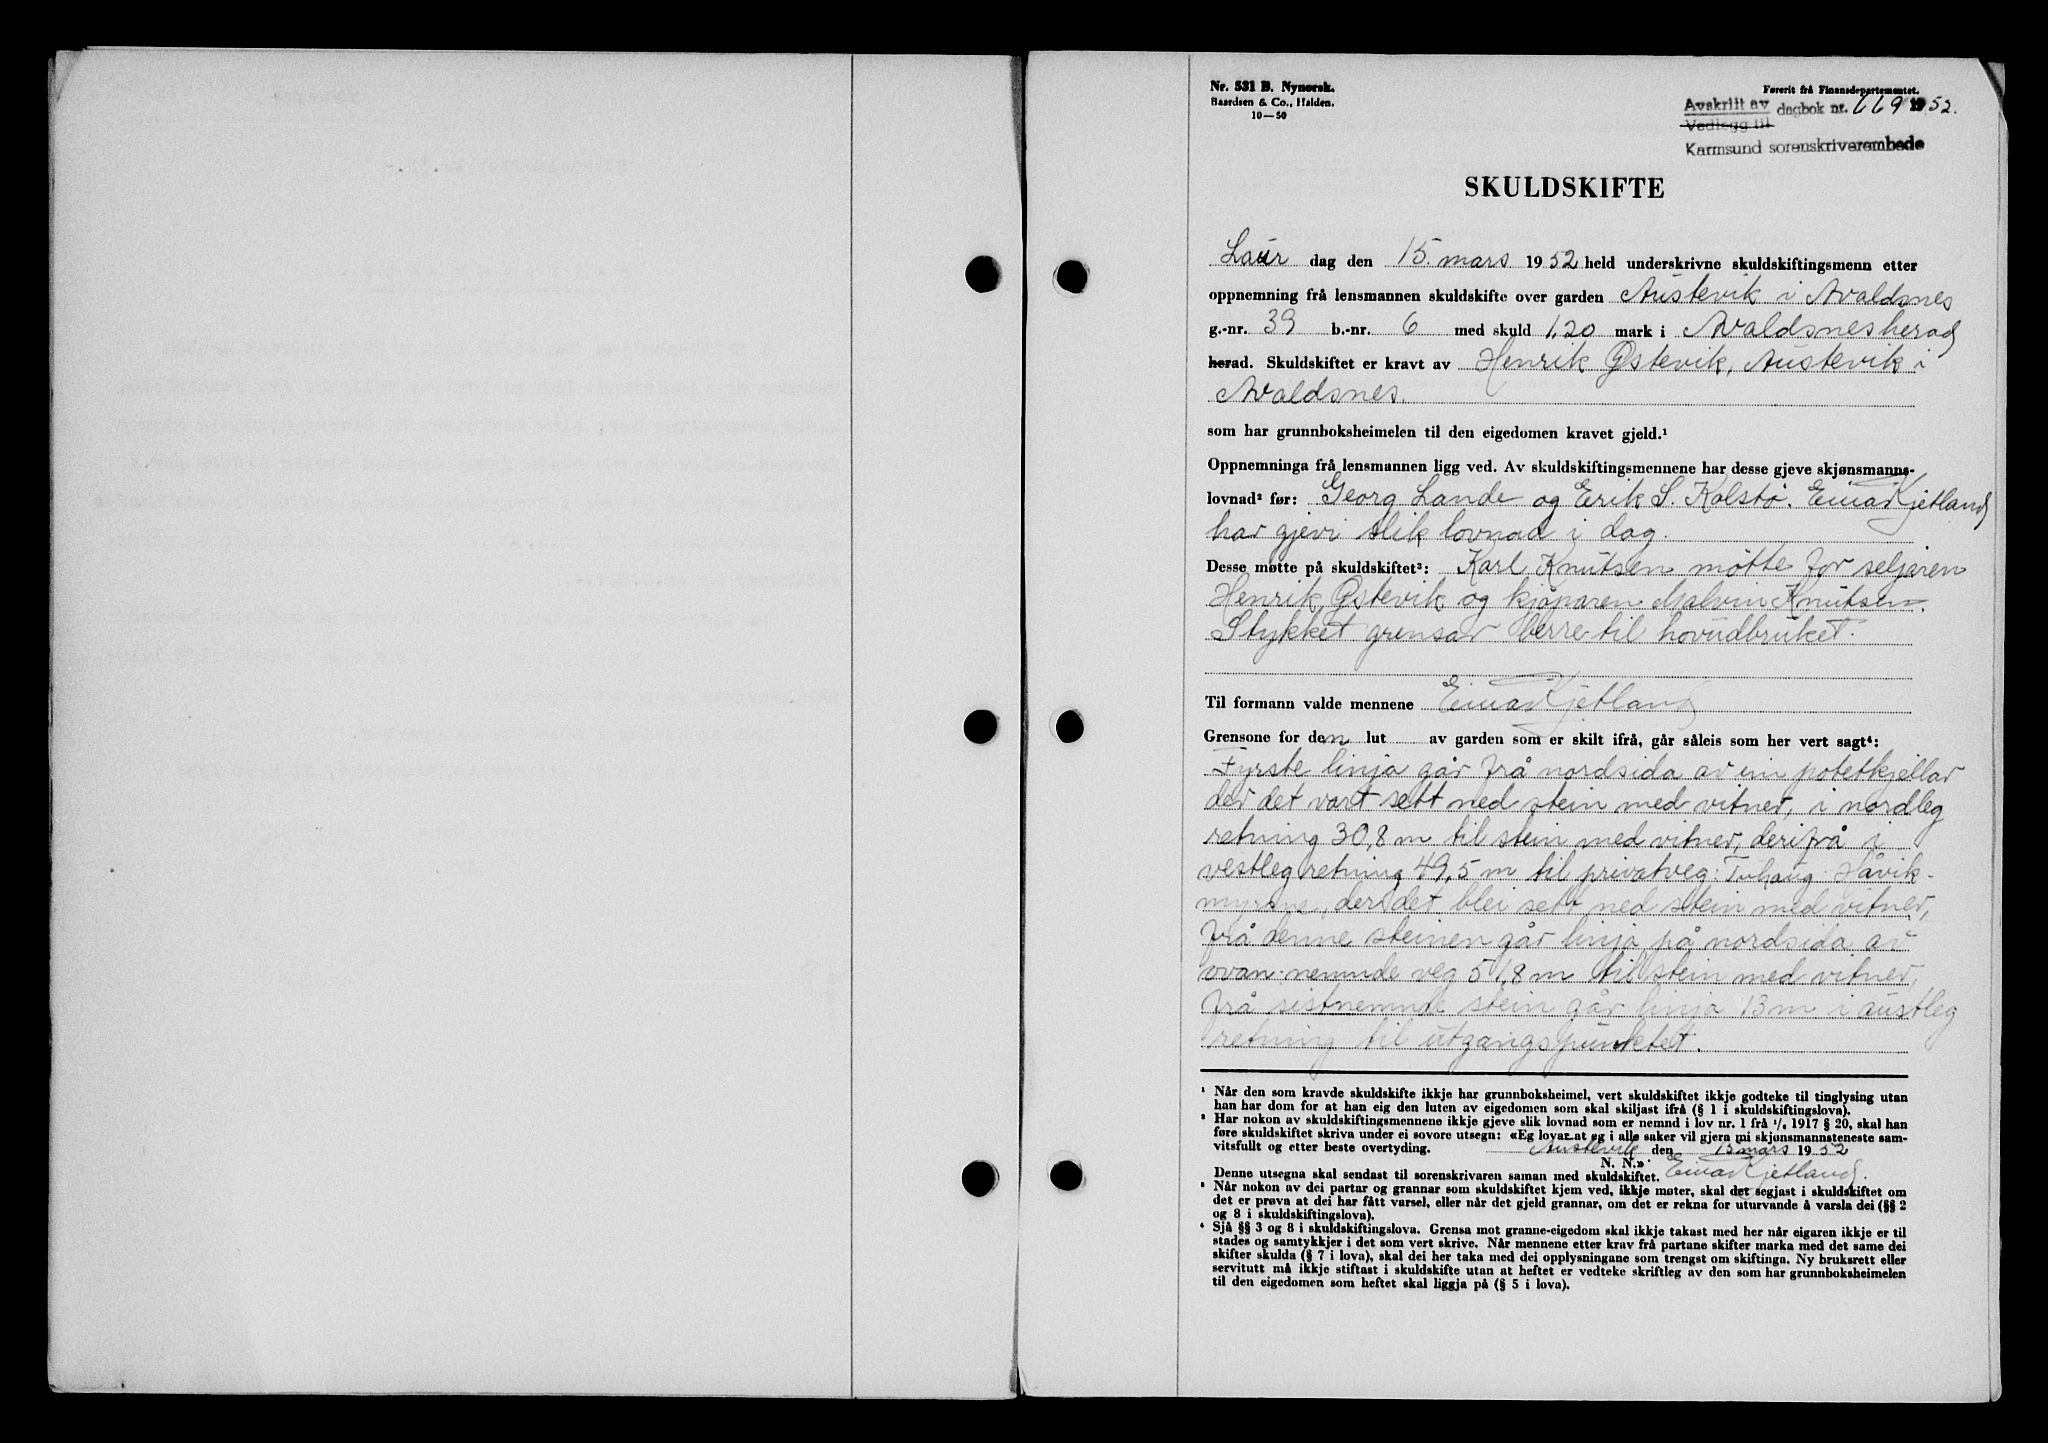 Nr. 531 B. Nynorsk.
Baardsen & Co., Halden.
10—50
Førerit frå Finansdepartementet.
Avskrift av dagbok nr. 669 1952.
Vedlegg til
Karmsund sorenskriverembede
SKULDSKIFTE
Laur dag den 15. mars 1952 held underskrivne skuldskiftingsmenn etter
oppnemning frå lensmannen skuldskifte over garden Austevik i Avaldsnes
g.-nr. 39 b.-nr. 6 med skuld 1,20 mark i Avaldsnes herad
herad. Skuldskiftet er kravt av Henrik Østevik, Austevik i
Avaldsnes.
som har grunnboksheimelen til den eigedomen kravet gjeld.¹
Oppnemninga frå lensmannen ligg ved. Av skuldskiftingsmennene har desse gjeve skjønsmanns-
lovnad² før: Georg Lande og Erik S. Kolstø. Einar Kjetland
har gjevi slik lovnad i dag.
Desse møtte på skuldskiftet³: Karl Knutsen møtte for seljaren
Henrik Østevik og kjøparen Malvin Knutsen.
Stykket grensar berre til hovudbruket.
Til formann valde mennene Einar Kjetland
Grensone for den lut av garden som er skilt ifrå, går såleis som her vert sagt⁴:
Fyrste linja går frå nordsida av ein potetkjellar
der det vart sett ned stein med vitner, i nordleg
retning 30,8 m til stein med vitner, derifrå i
vestleg retning 49,5 m til privatveg: Tuhaug Håvik-
myrane, der det blei sett ned stein med vitner,
frå denne steinen går linja på nordsida av
ovan nemnde veg 51,8 m til stein med vitner,
frå sistnemnde stein går linja 13 m i austleg
retning til utgangspunktet.
¹ Når den som kravde skuldskifte ikkje har grunnboksheimel, vert skuldskiftet ikkje godteke til tinglysing utan
han har dom for at han eig den luten av eigedomen som skal skiljast ifrå (§ 1 i skuldskiftingslova).
² Har nokon av skuldskiftingsmennene ikkje gjeve slik lovnad som er nemnd i lov nr. 1 frå ¹/₆ 1917 § 20, skal han
føre skuldskiftet skriva under ei sovore utsegn: «Eg lovar at eg i alle saker vil gjera mi skjønsmannsteneste sam-
vitsfullt og etter beste overtyding. Austevik den 15 mars 1952
N. N.»
Denne utsegna skal sendast til sorenskrivaren saman med skuldskiftet. Einar Kjetland.
³ Når nokon av dei partar og grannar som skuldskiftet kjem ved, ikkje møter, skal det segjast i skuldskiftet om
det er prøva at dei har fått varsel, eller når det gjeld grannar, om det er rekna for uturvande å varsla dei (§§ 2
og 8 i skuldskiftingslova).
⁴ Sjå §§ 3 og 8 i skuldskiftingslova. Grensa mot granne-eigedom skal ikkje takast med her når eigaren ikkje er til
stades og samtykkjer i det som vert skrive. Når mennene etter krav frå partane skifter marka med det same dei
skifter skulda (§ 7 i lova), skal dei her taka med dei opplysningane som trengst om skiftinga. Ny bruksrett eller
servitutt må ikkje stiftast i skuldskifte utan at heftet er vedteke skriftleg av den som har grunnboksheimelen
til den eigedomen som heftet skal liggja på (§ 5 i lova).